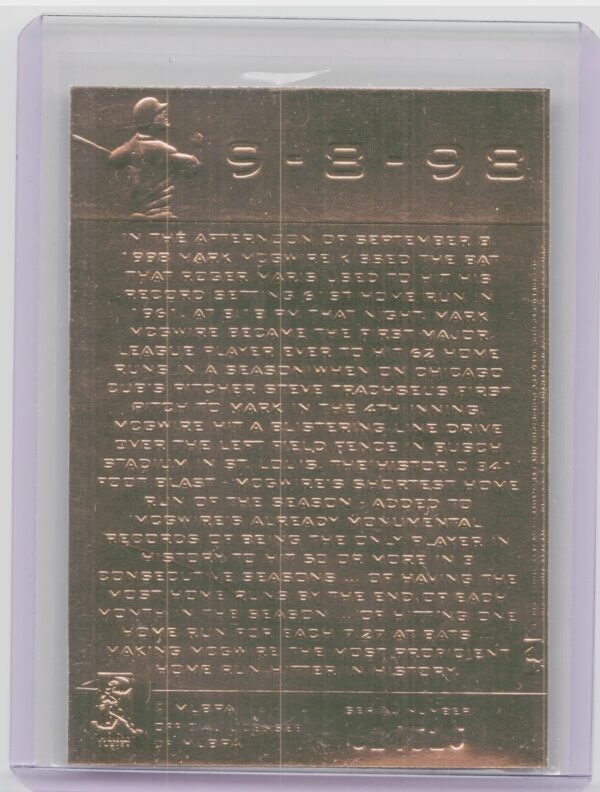 9-8-98
IN THE AFTERNOON OF SEPTEMBER 8,
1998 MARK MCGWIRE KISSED THE BAT
THAT ROGER MARIS USED TO HIT HIS
RECORD SETTING 61ST HOME RUN IN
1961. AT 8:18 PM THAT NIGHT, MARK
MCGWIRE BECAME THE FIRST MAJOR
LEAGUE PLAYER EVER TO HIT 62 HOME
RUNS IN A SEASON WHEN ON CHICAGO
CUB'S PITCHER STEVE TRACHSEL'S FIRST
PITCH TO MARK IN THE 4TH INNING,
MCGWIRE HIT A BLISTERING LINE DRIVE
OVER THE LEFT FIELD FENCE IN BUSCH
STADIUM IN ST. LOUIS. THE HISTORIC 341-
FOOT BLAST - MCGWIRE'S SHORTEST HOME
RUN OF THE SEASON - ADDED TO
MCGWIRE'S ALREADY MONUMENTAL
RECORDS OF BEING THE ONLY PLAYER IN
HISTORY TO HIT 50 OR MORE IN 3
CONSECUTIVE SEASONS ... OF HAVING THE
MOST HOME RUNS BY THE END OF EACH
MONTH IN THE SEASON ... OF HITTING ONE
HOME RUN FOR EACH 7.27 AT BATS
MAKING MCGWIRE THE MOST PROFICIENT
HOME RUN HITTER IN HISTORY.
© MLBPA
OFFICIAL LICENSEE
OF MLBPA
SERIAL NUMBER